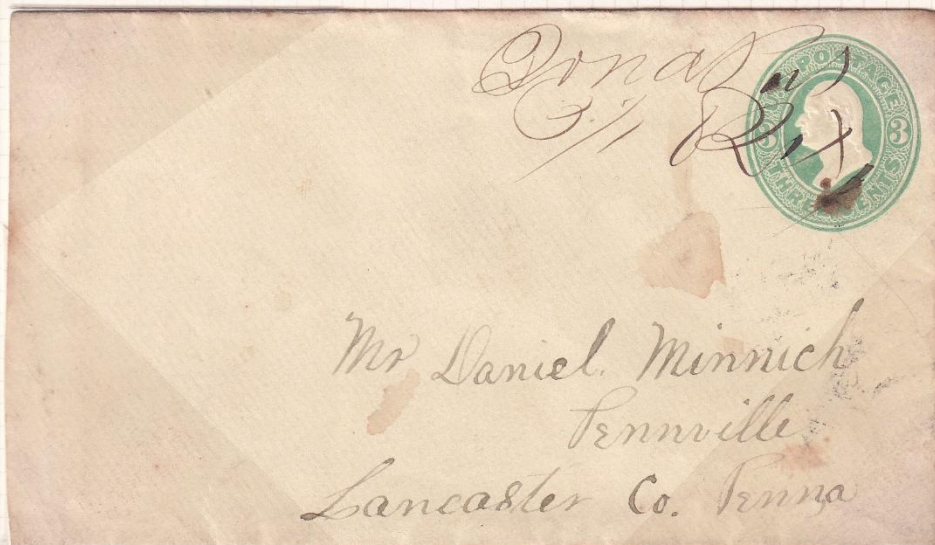 U.S. POSTAGE
3 3
THREE CENTS
Mr Daniel. Minnich
Pennville
Lancaster Co. Penna